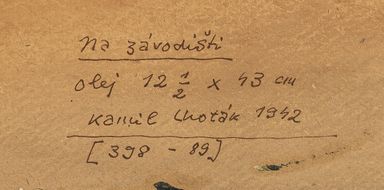 Na závodišti
olej 12 1/2 x 43 cm
Kamil Lhoták 1942
[398 - 89]